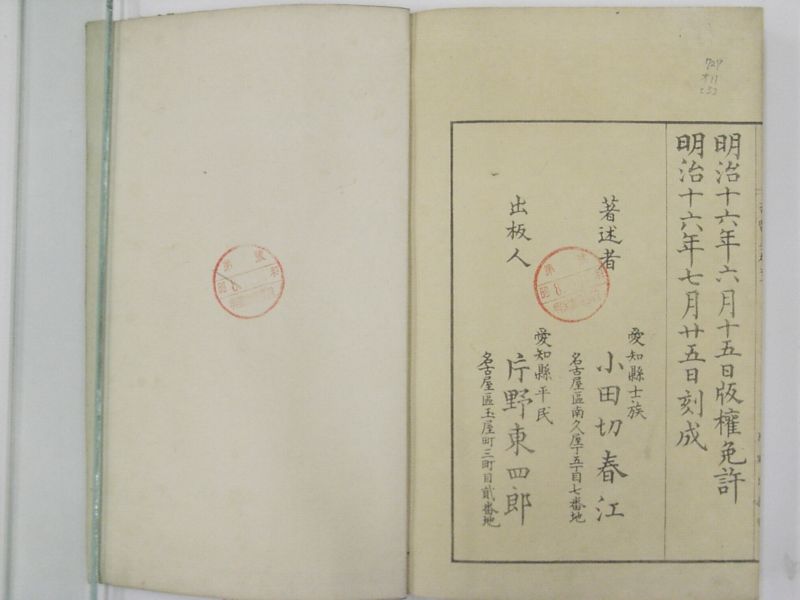 明治十六年六月十五日版權免許
明治十六年七月廿五日刻成
著述者
愛知縣士族
小田切春江
名古屋區南久屋丁五丁目七番地
出板人
愛知縣平民
片野東四郎
名古屋區玉屋町三町目貳番地